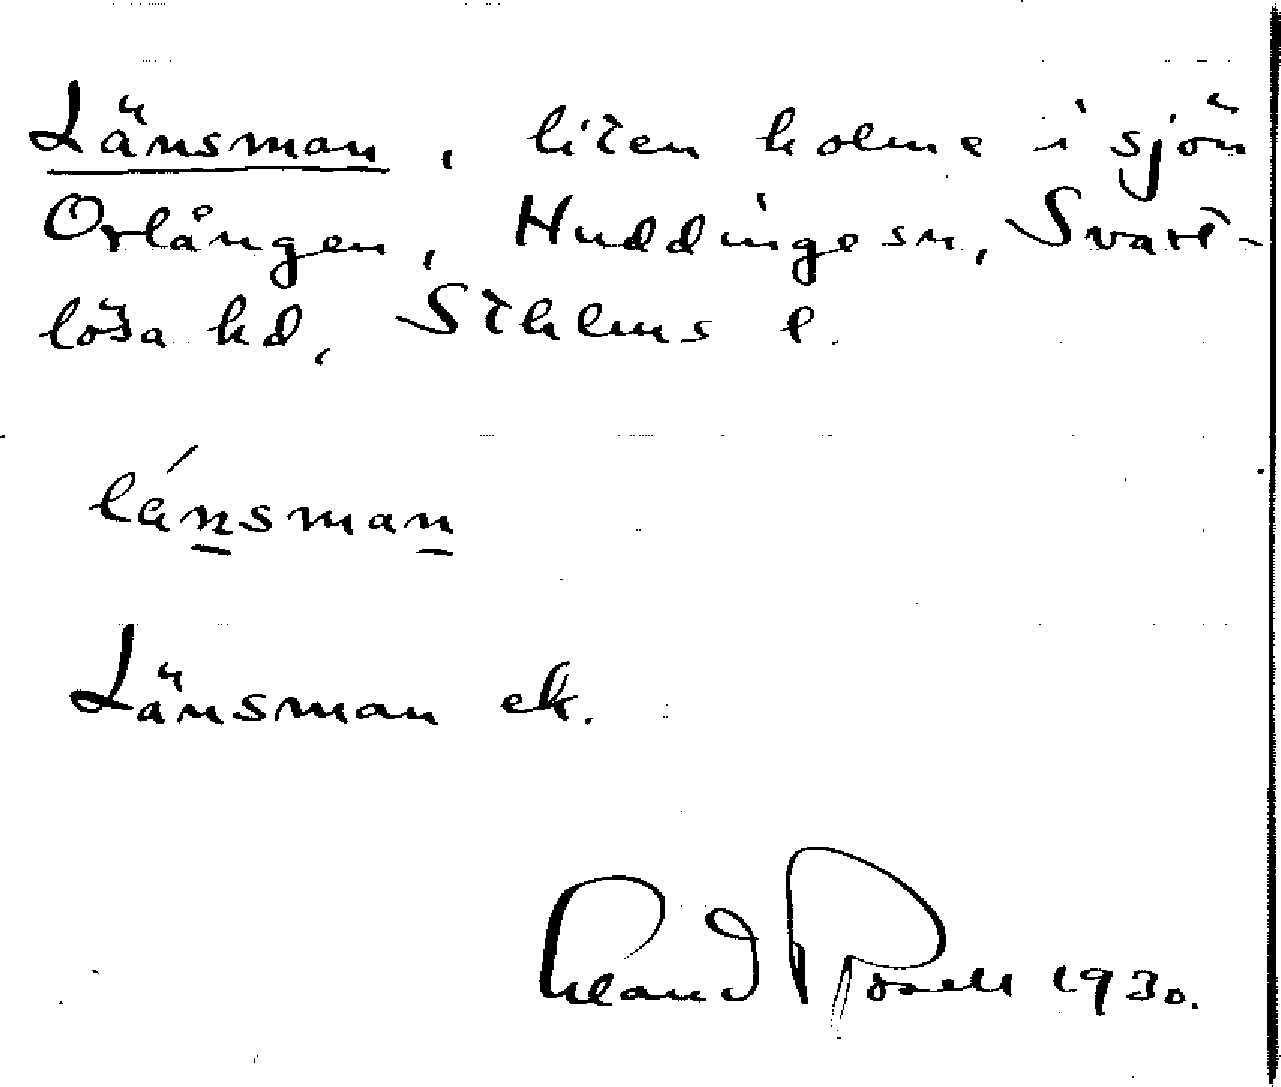 Länsman, liten holme i sjön
Orlången, Huddinge sn, Svart-
lösa hd, Sthlms l.
lánsman
Länsman ek.
Erland Rosell 1930.